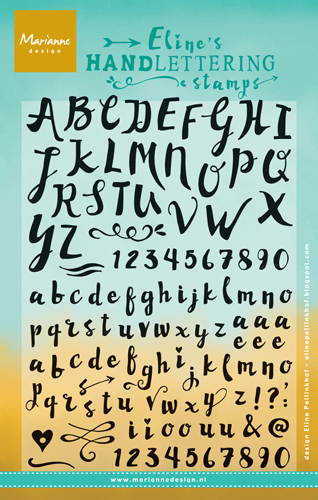 Marianne
design
Eline's
HANDLETTERING
stamps
ABCDEFGHI
JKLMNOPQ
RSTUVWX
YZ 1234567890
abcdefghijklmno
pqrstuvwxyzaaa
eee
abcdefghijklmno
pqrstuvwxyz!?':
iioouu&@
1234567890
www.mariannedesign.nl
design Eline Pellinkhof - elinepellinkhof.blogspot.com